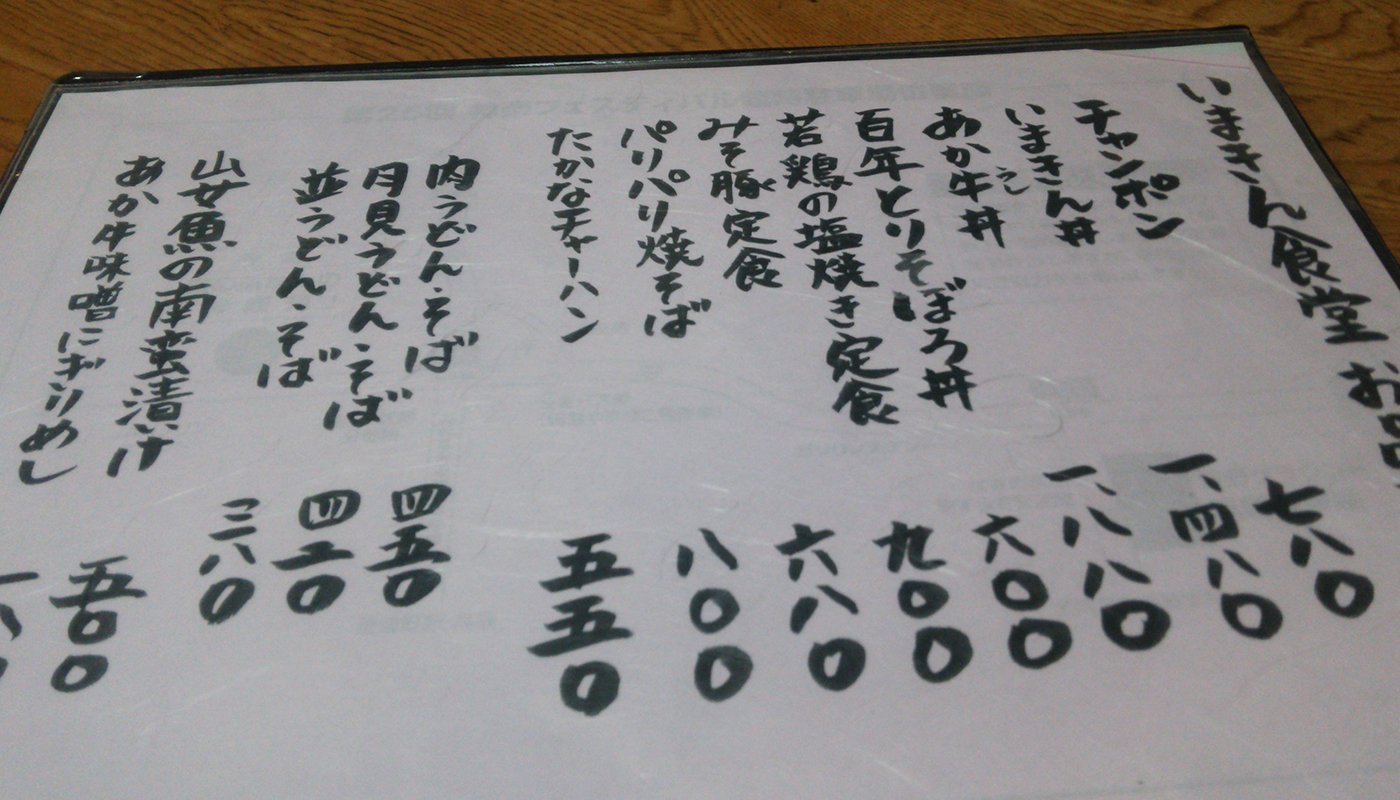 いまきん食堂 お品
チャンポン 七八〇
いまきん丼 一、四八〇
あか牛丼 一、八八〇
うし
百年とりそぼろ丼 六〇〇
若鶏の塩焼き定食 九〇〇
みそ豚定食 六八〇
パリパリ焼そば 八〇〇
たかなチャーハン 五五〇
肉うどん・そば 四五〇
月見うどん・そば 四二〇
並うどん・そば 三八〇
山女魚の南蛮漬け 五〇〇
あか牛味噌にぎりめし